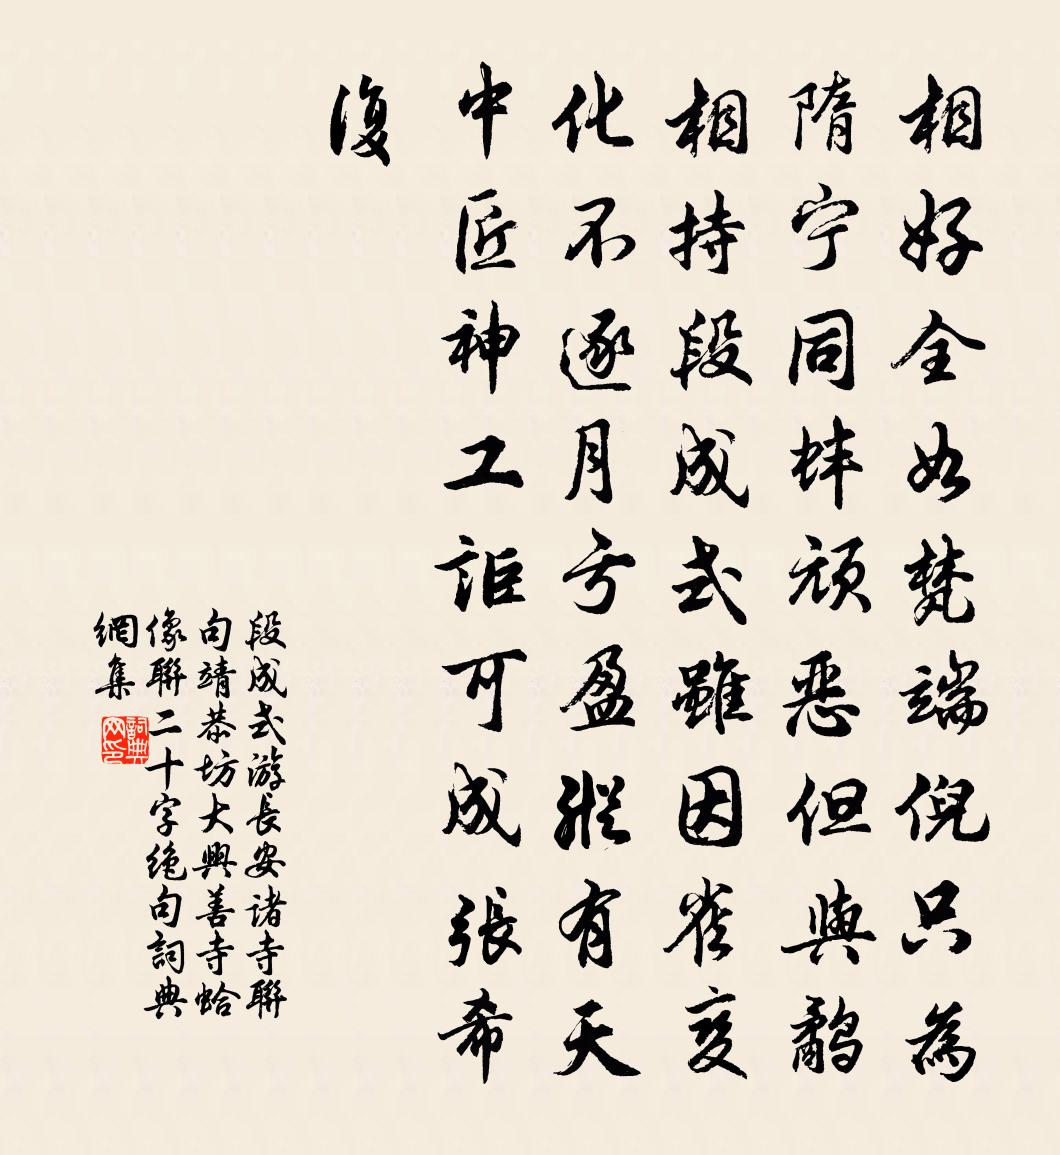 相好全如梵端倪只為
隋宁同蚌頑惡但與鷸
相持段成式雖因雀變
化不逐月亏盈縱有天
中匠神工詎可成張希
復
段成式游長安诸寺聯
句靖恭坊大興善寺蛤
像聯二十字绝句詞典
網集
詞典
网印